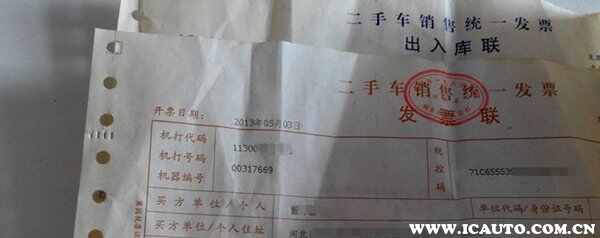 二手车销售统一发票
出入库联
二手车销售统一发票
发票联
开票日期： 2013年05月03日
机打代码 11300
机打号码 00317669
机器编号
税控码 71C655535
买方单位/个人
单位代码/身份证号码
买方单位/个人住址 河北
WWW.ICAUTO.COM.CN